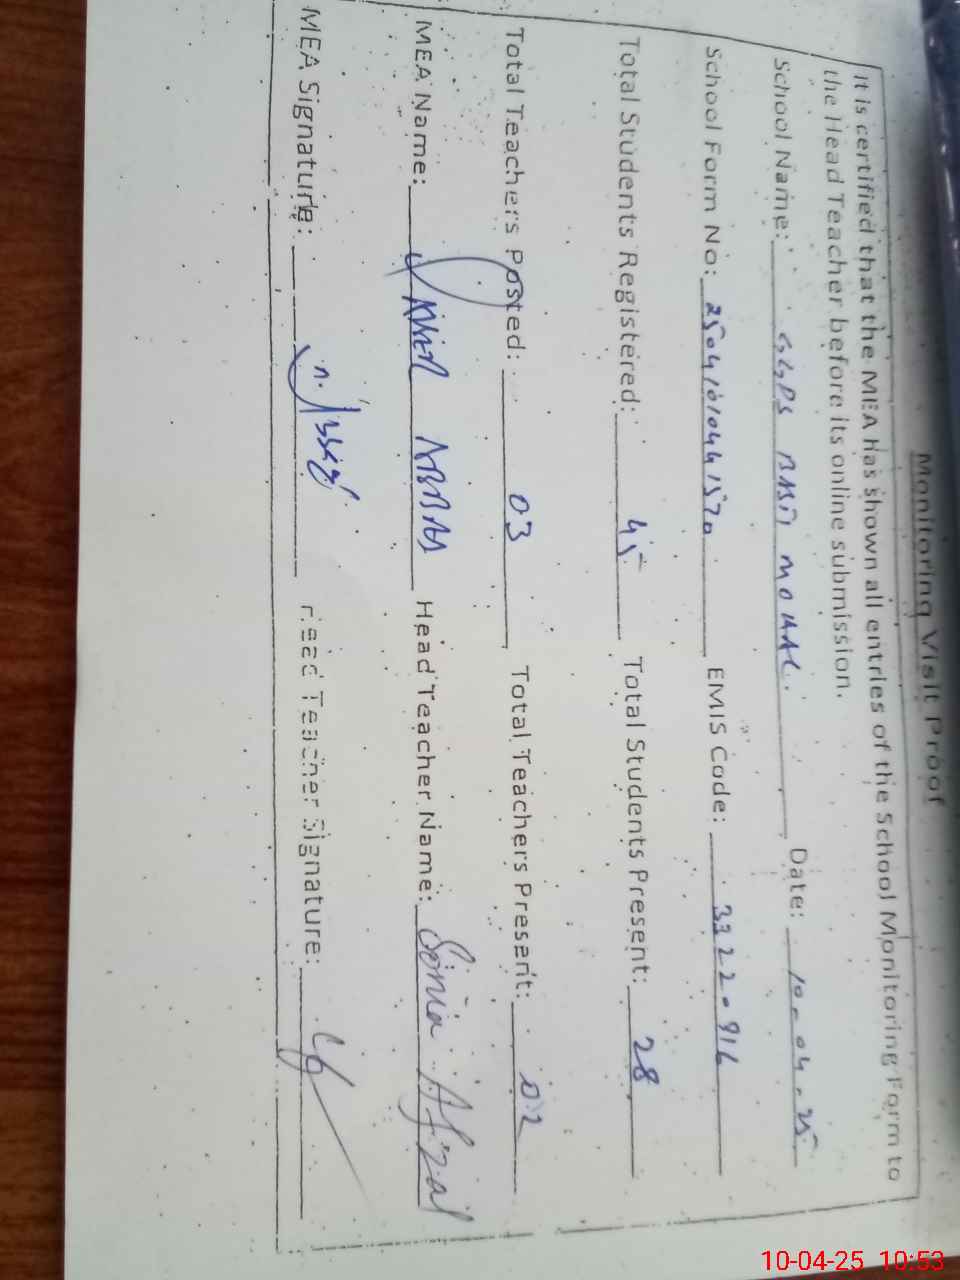 Monitoring Visit Proof
It is certified that the MEA has shown all entries of the School Monitoring Form to
the Head Teacher before its online submission.
School Name: GGPS Date: 10-04-25
School Form No: EMIS Code: 33220916
Total Students Registered: 45 Total Students Present: 28
Total Teachers Posted: 03 Total Teachers Present: 02
MEA Name: ABBAS Head Teacher Name: Sonia Afzal
MEA Signature: Head Teacher Signature:
10-04-25 10:53